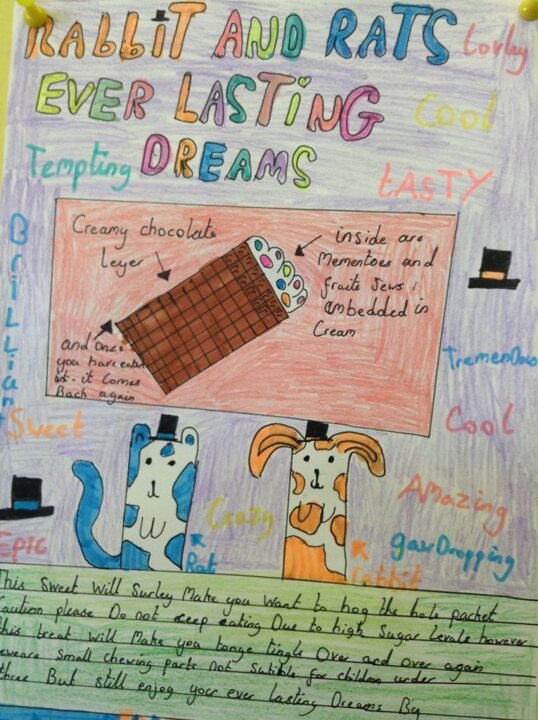 RABBIT AND RATS
Lovley
EVER LASTING
Cool
DREAMS
Tempting
tASTY
Creamy chocolate
leyer
inside are
Mementoes and
fruits Jews,
embedded in
Cream
and once
you have eaten
it. it comes
Back again
BrilliAnt
TremenDous
Sweet
Cool
Crazy
Amazing
gawDropping
Epic
Rat
rabbit
This Sweet Will Surley Make you Want to hog the hole packet
Caution please Do not keep eating Due to high Sugar levals however
this treat will Make you tonge tingle Over and over again
beware Small chewing parts not Sutible for children under
three But still enjoy your ever lasting Dreams By